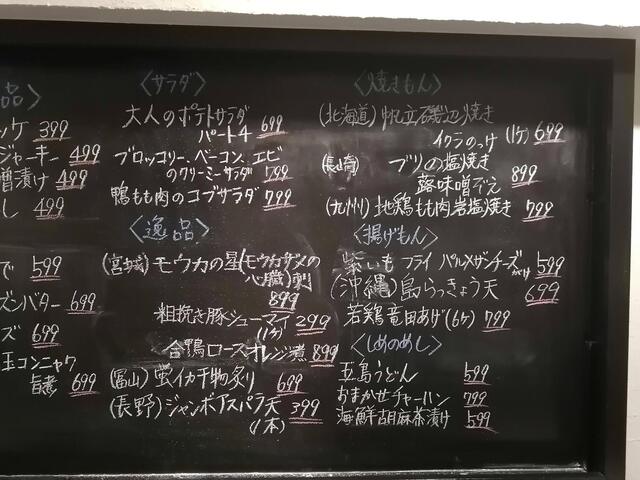 品〉
ッケ 399
ジャーキー 499
噌漬け 499
し 499
で 599
ズンバター 699
ズ 699
玉コンニャク
旨煮 699
〈サラダ〉
大人のポテトサラダ
パート4 699
ブロッコリー、ベーコン、エビ
のクリーミーサラダ 799
鴨もも肉のコブサラダ 799
〈逸品〉
(宮城)モウカの星(モウカザメの
心臓)刺
899
粗挽き豚シューマイ 299
(1ケ)
合鴨ロースオレンジ煮 899
(富山)蛍イカ干物炙り 699
(長野)ジャンボアスパラ天 399
(1本)
〈焼きもん〉
(北海道)帆立磯辺焼き
イクラのっけ (1ケ) 699
(長崎) ブリの塩焼き
蕗味噌ぞえ 899
(九州)地鶏もも肉岩塩焼き 799
〈揚げもん〉
紫いもフライ パルメザンチーズがけ 599
(沖縄)島らっきょう天 699
若鶏竜田あげ(6ケ) 799
〈しめのめし〉
五島うどん 599
おまかせチャーハン 799
海鮮胡麻茶漬け 599